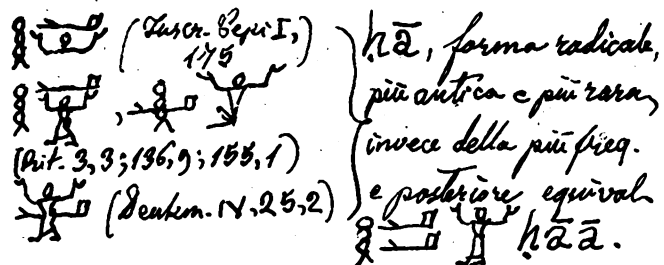 (Inscr. Pepi I,
175)
(Rit. 3,3; 136,9; 155,1)
(Deutem. IV, 25, 2)
ḥā, forma radicale,
più antica e più rara,
invece della più freq.
e posteriore equival.
ḥāā.